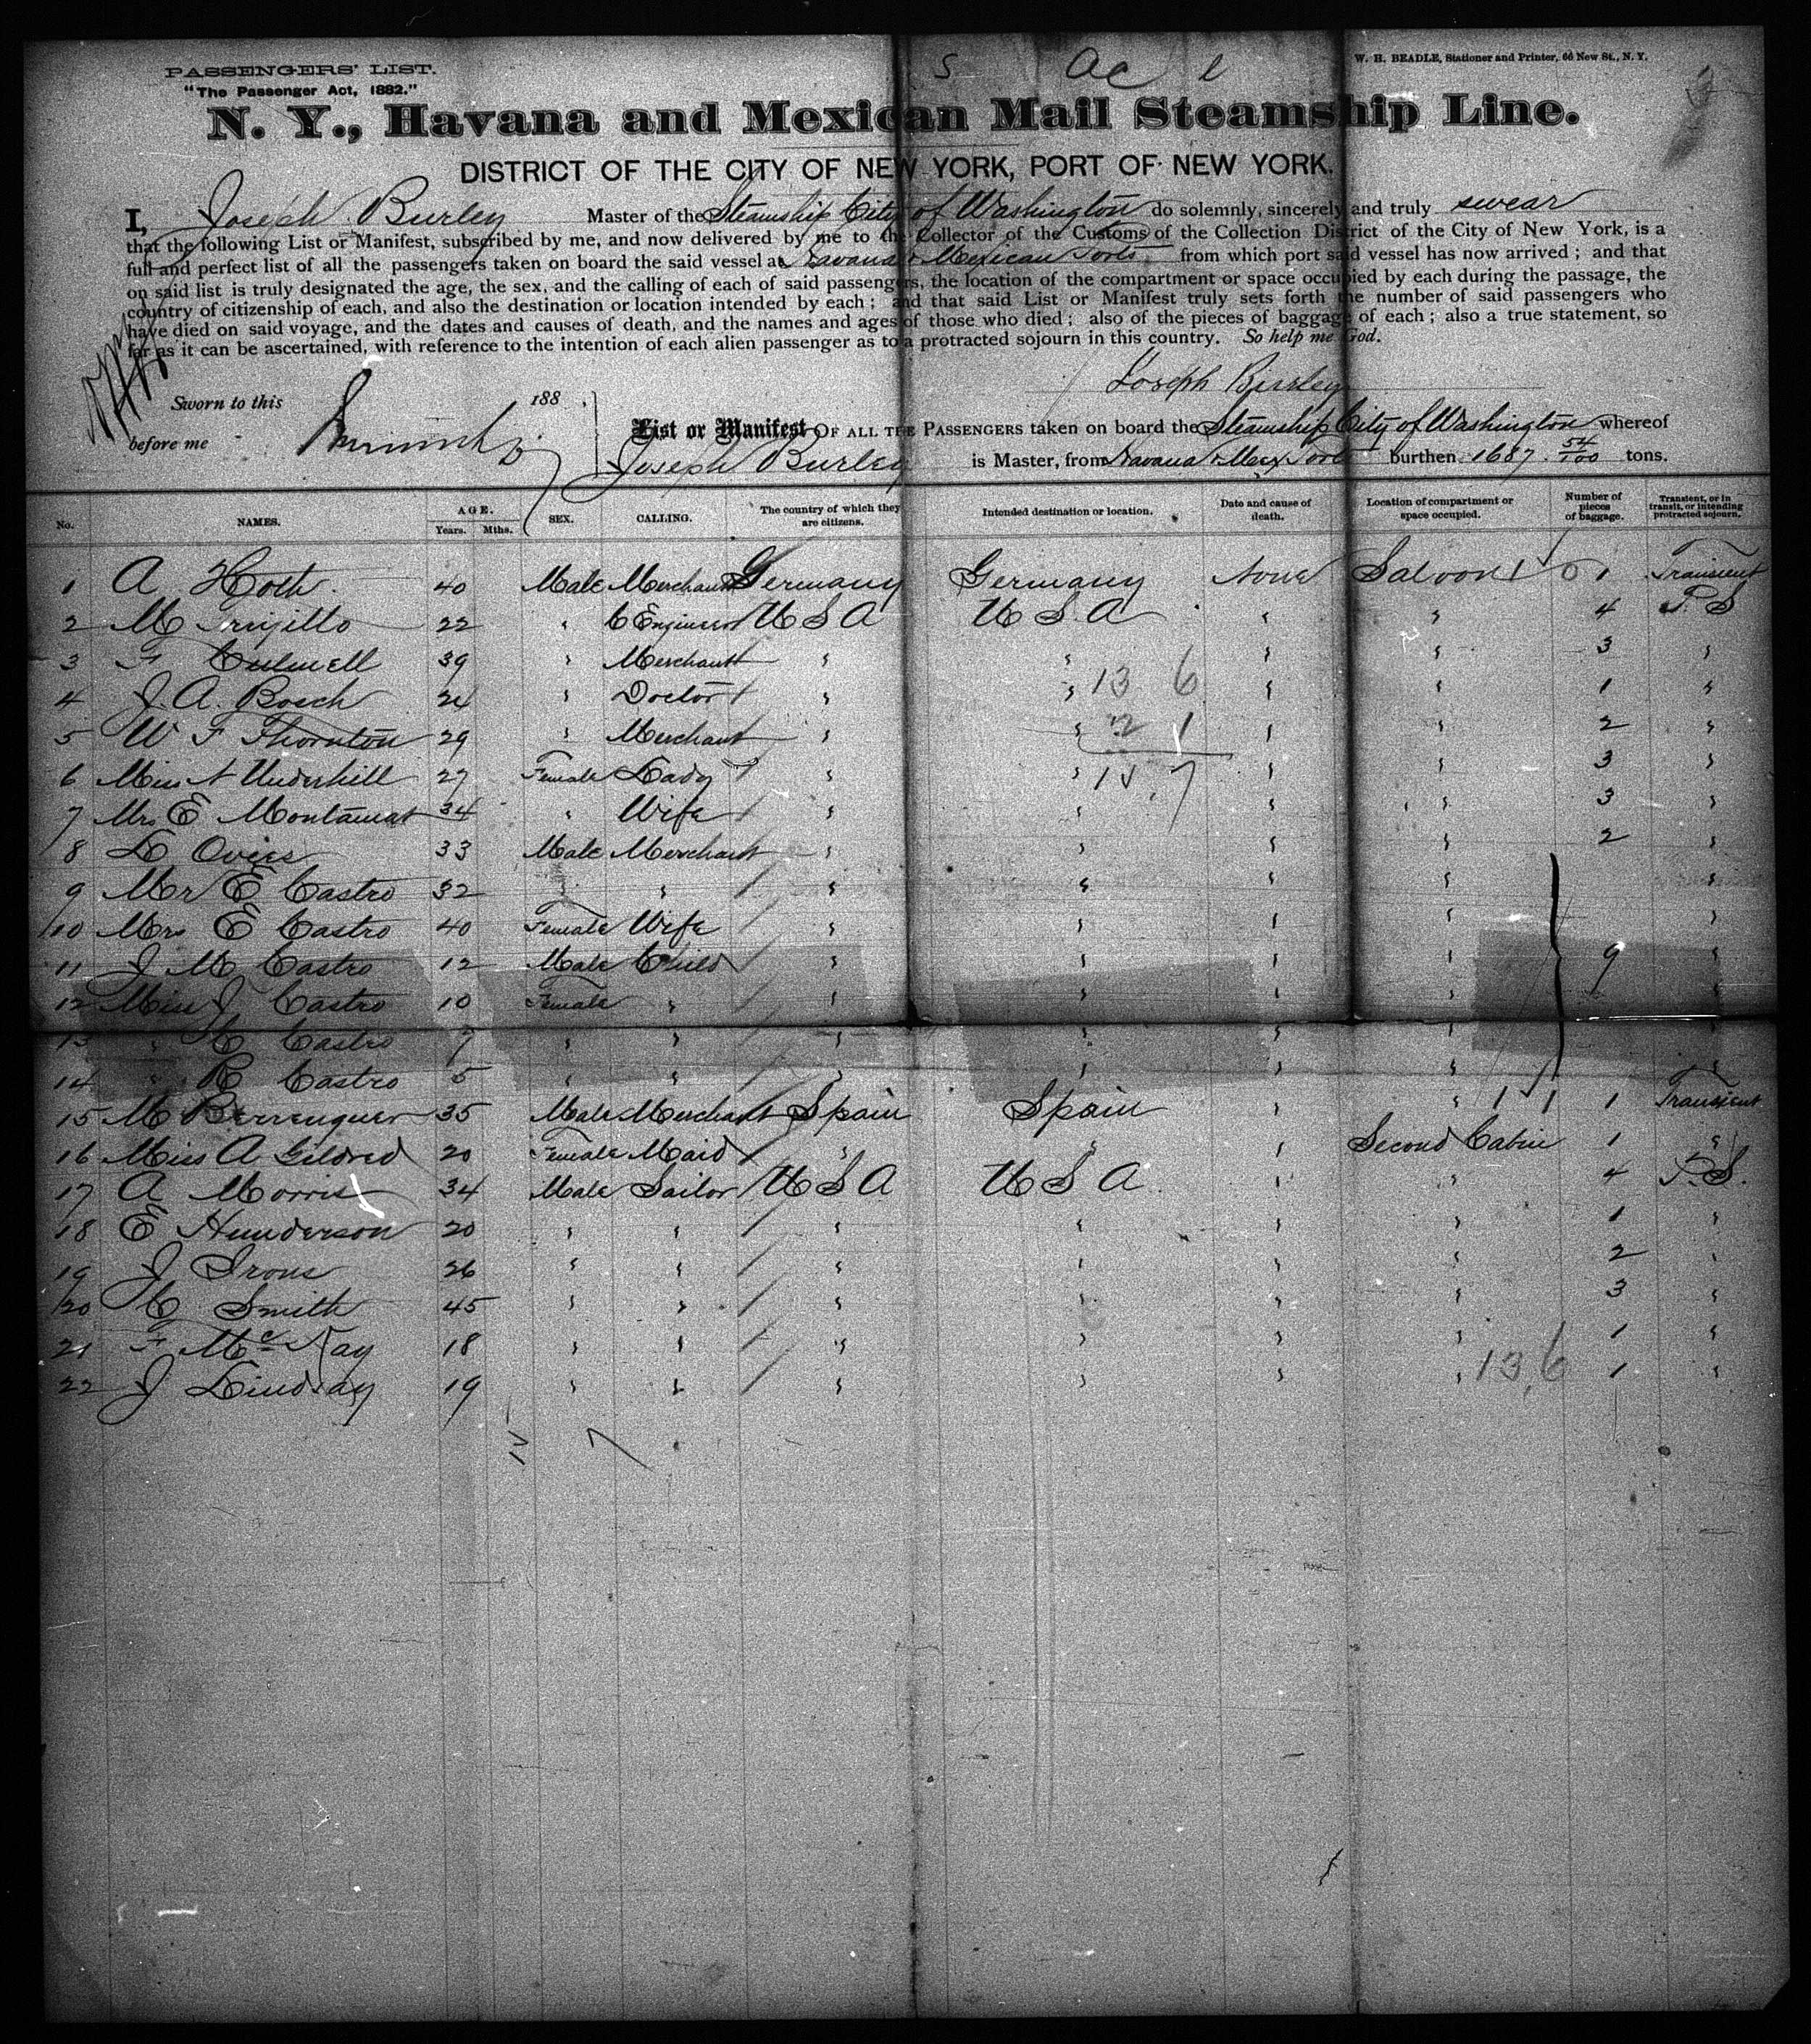 PASSENGERS' LIST.
"The Passenger Act, 1882."
W. H. BEADLE, Stationer and Printer, 60 New St., N. Y.
N. Y., Havana and Mexican Mail Steamship Line.
DISTRICT OF THE CITY OF NEW YORK, PORT OF NEW YORK.
I, Joseph Burley Master of the Steamship City of Washington do solemnly, sincerely and truly swear
that the following List or Manifest, subscribed by me, and now delivered by me to the Collector of the Customs of the Collection District of the City of New York, is a
full and perfect list of all the passengers taken on board the said vessel at Havana & Mexican Ports from which port said vessel has now arrived; and that
on said list is truly designated the age, the sex, and the calling of each of said passengers, the location of the compartment or space occupied by each during the passage, the
country of citizenship of each, and also the destination or location intended by each; and that said List or Manifest truly sets forth the number of said passengers who
have died on said voyage, and the dates and causes of death, and the names and ages of those who died; also of the pieces of baggage of each; also a true statement, so
far as it can be ascertained, with reference to the intention of each alien passenger as to a protracted sojourn in this country. So help me God.
Joseph Burley
Sworn to this 188 .
before me
List or Manifest OF ALL THE PASSENGERS taken on board the Steamship City of Washington whereof
Joseph Burley is Master, from Havana & Mex Ports burthen 1687 54/100 tons.
No. NAMES. AGE. Years. Mths. SEX. CALLING. The country of which they are citizens. Intended destination or location. Date and cause of death. Location of compartment or space occupied. Number of pieces of baggage. Transient, or in transit, or intending protracted sojourn.
1 A Hoth 40 Male Merchant Germany Germany None Saloon 1 Transient
2 M Trujillo 22 " C Engineer U S A U S A " " 4 P. S
3 F Culmell 39 " Merchant " " " " 3 "
4 J. A. Bosch 24 " Doctor " " " " 1 "
5 W F Thornton 29 " Merchant " " " " 2 "
6 Miss A Underhill 27 Female Lady " " " " 3 "
7 Mrs E Montamat 34 " Wife " " " " 3 "
8 L Ovies 33 Male Merchant " " " " 2 "
9 Mr E Castro 32 " " " " " " "
10 Mrs E Castro 40 Female Wife " " " " "
11 J M Castro 12 Male Child " " " " 9 "
12 Miss J Castro 10 Female " " " " " "
13 " C Castro 7 " " " " " " "
14 " R Castro 5 " " " " " " "
15 M Berrenguer 35 Male Merchant Spain Spain " " 1 Transient
16 Miss A Gildred 20 Female Maid " " " Second Cabin 1 "
17 A Morris 34 Male Sailor U S A U S A " " 4 P. S.
18 E Hunderson 20 " " " " " " 1 "
19 J Irons 26 " " " " " " 2 "
20 C Smith 45 " " " " " " 3 "
21 F McNay 18 " " " " " " 1 "
22 J Lindsay 19 " " " " " " 1 "